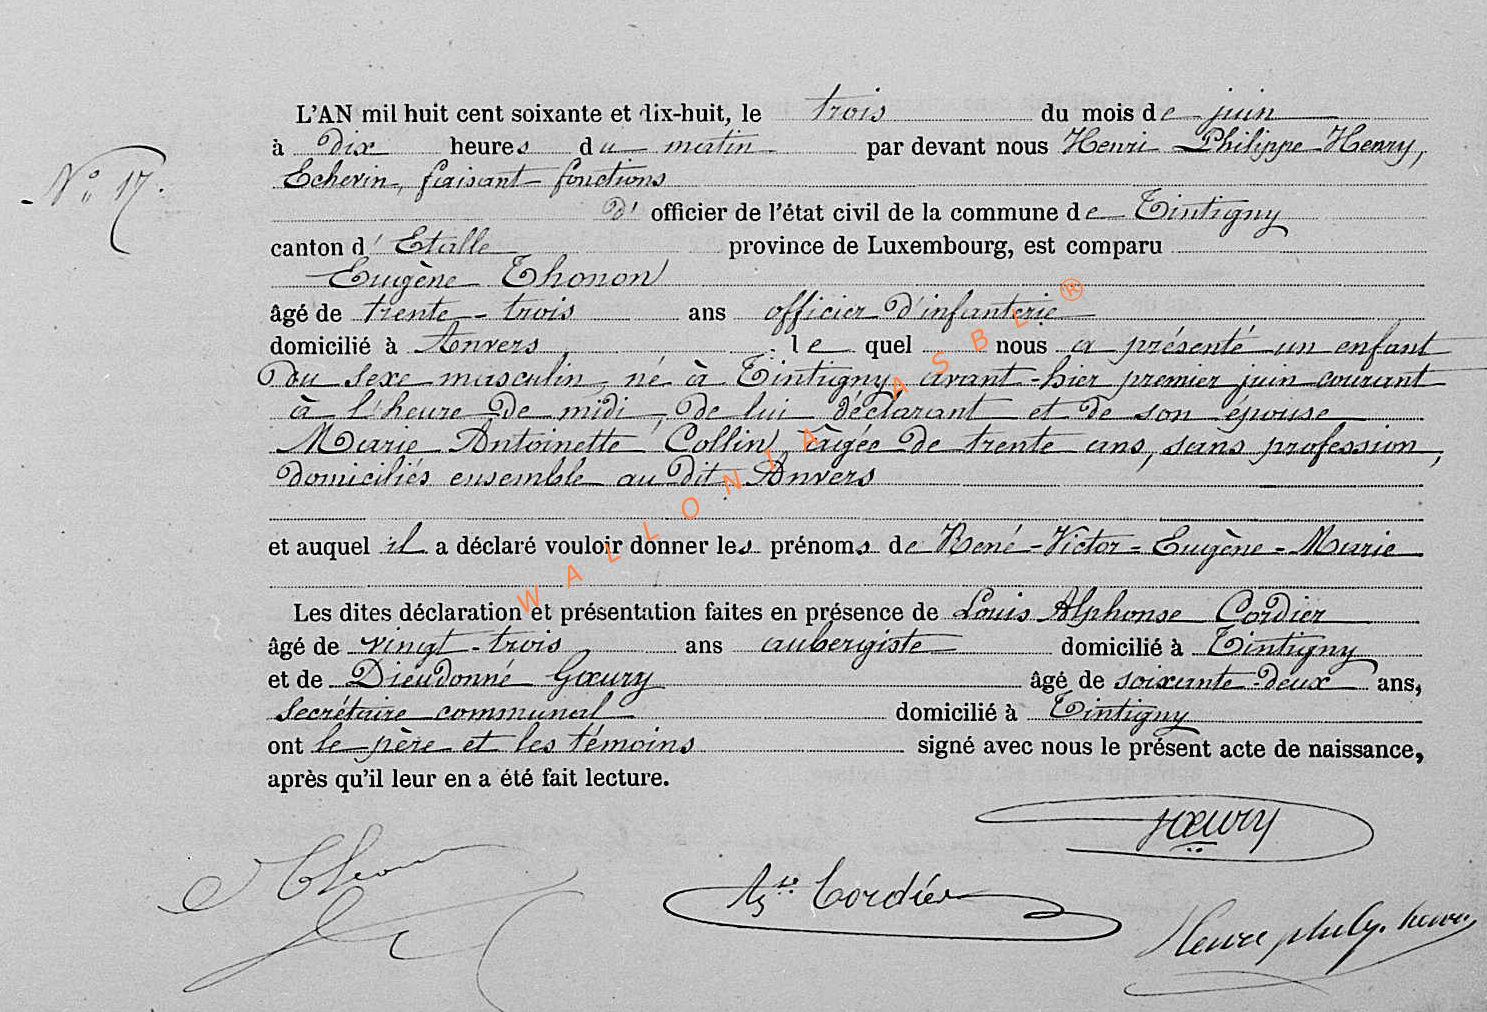 N° 17.
L'AN mil huit cent soixante et dix-huit, le trois du mois de juin
à dix heures du matin par devant nous Henri Philippe Henry,
Echevin, faisant fonctions
d' officier de l'état civil de la commune de Tintigny
canton d' Etalle province de Luxembourg, est comparu
Eugène Thonon
âgé de trente-trois ans officier d'infanterie
domicilié à Anvers, lequel nous a présenté un enfant
du sexe masculin, né à Tintigny, avant-hier premier juin courant
à l'heure de midi, de lui déclarant et de son épouse
Marie Antoinette Collin, âgée de trente ans, sans profession,
domiciliés ensemble au dit Anvers
et auquel il a déclaré vouloir donner les prénoms de René-Victor-Eugène-Marie
Les dites déclaration et présentation faites en présence de Louis Alphonse Cordier
âgé de vingt-trois ans aubergiste domicilié à Tintigny
et de Dieudonné Gœury âgé de soixante-deux ans,
secrétaire communal domicilié à Tintigny
ont le père et les témoins signé avec nous le présent acte de naissance,
après qu'il leur en a été fait lecture.
Gœury
Cordier
WALLONIA ASBL ®